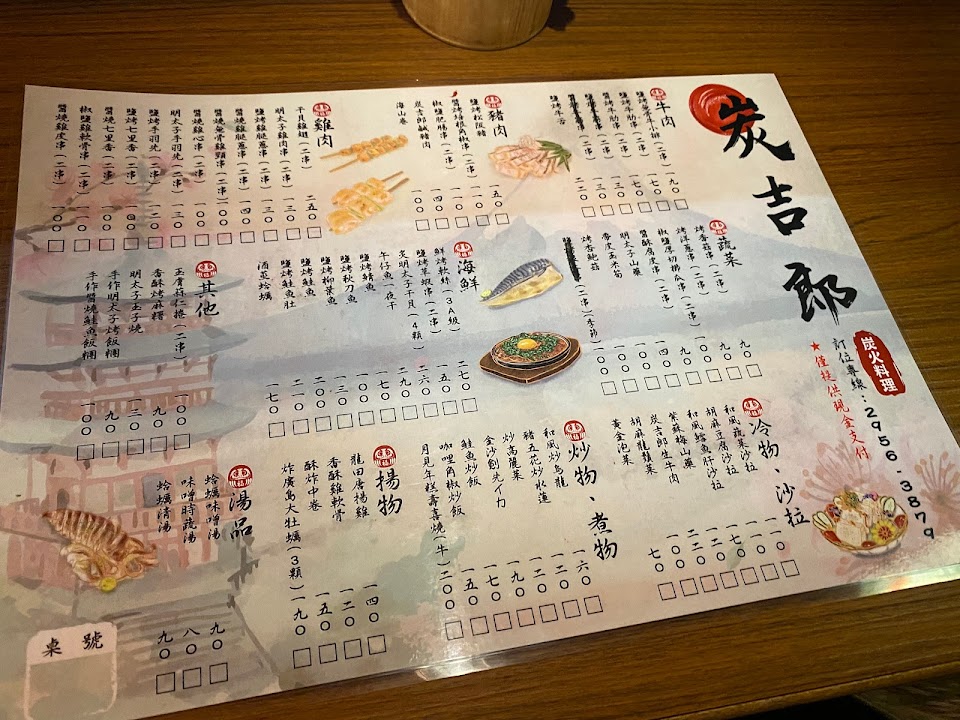 炭吉郎
炭火料理
訂位專線:2956-3879
★僅提供現金支付
牛肉
鹽烤無骨牛小排(二串)一九〇
鹽烤牛肋串(二串)一七〇
鹽烤牛舌 二二〇
豬肉
鹽烤松阪豬 一五〇
醬烤培根角椒串(二串)一〇〇
椒鹽肥腸串(二串)一一〇
炭吉郎鹹豬肉 一四〇
雞肉
干貝雞翅(二串)二五〇
明太子雞肉串(二串)一五〇
鹽燒雞腿蔥串(二串)一三〇
醬燒雞腿蔥串(二串)
醬燒無骨雞頸串(二串)
醬燒雞心串(二串)一〇〇
明太子手羽先(二串)一三〇
鹽烤手羽先(二串)
鹽烤七里香(二串)
醬燒七里香(二串)
椒鹽雞軟骨串(二串)
醬燒雞皮串(二串)一〇〇
蔬菜
烤香菇串(二串)九〇
烤洋蔥串(二串)九〇
椒鹽厚切櫛瓜串(二串)九〇
醬酥腐皮串(二串)九〇
明太子山藥 一四〇
麥皮玉米筍 一〇〇
烤杏鮑菇
海鮮
鮮烤軟絲(3A級)二七〇
鹽烤草蝦串(二串)一五〇
炙明太子干貝(4顆)二六〇
午仔魚一夜干 二九〇
鹽烤鯖魚 一七〇
鹽烤秋刀魚 一〇〇
鹽烤柳葉魚 一三〇
鹽烤鮭魚 二〇〇
鹽烤鮭魚肚 二一〇
酒蒸蛤蠣 一七〇
其他
豆膚荷仁捲(二串)一〇〇
香酥烤麻糬 九〇
明太子玉子燒 一二〇
手作明太子烤飯糰 九〇
手作醬燒鮭魚飯糰 一一〇
冷物、沙拉
和風蔬菜沙拉
胡麻豆腐沙拉
和風鱈魚肝沙拉
紫蘇梅山藥
炭吉郎生牛肉
胡麻龍鬚菜
黃金泡菜 七〇
炒物、煮物
和風炒烏龍 一六〇
豬五花炒水蓮
炒高麗菜
金沙劍先イカ 一九〇
鮭魚炒飯 一七〇
咖哩角椒炒飯 一五〇
月見年糕壽喜燒(牛)二〇〇
揚物
龍田唐揚雞 一四〇
香酥雞軟骨 一二〇
酥炸中卷 一五〇
炸廣島大牡蠣(3顆)一九〇
湯品
蛤蠣味噌湯 九〇
味噌時蔬湯 八〇
蛤蠣清湯 九〇
桌號